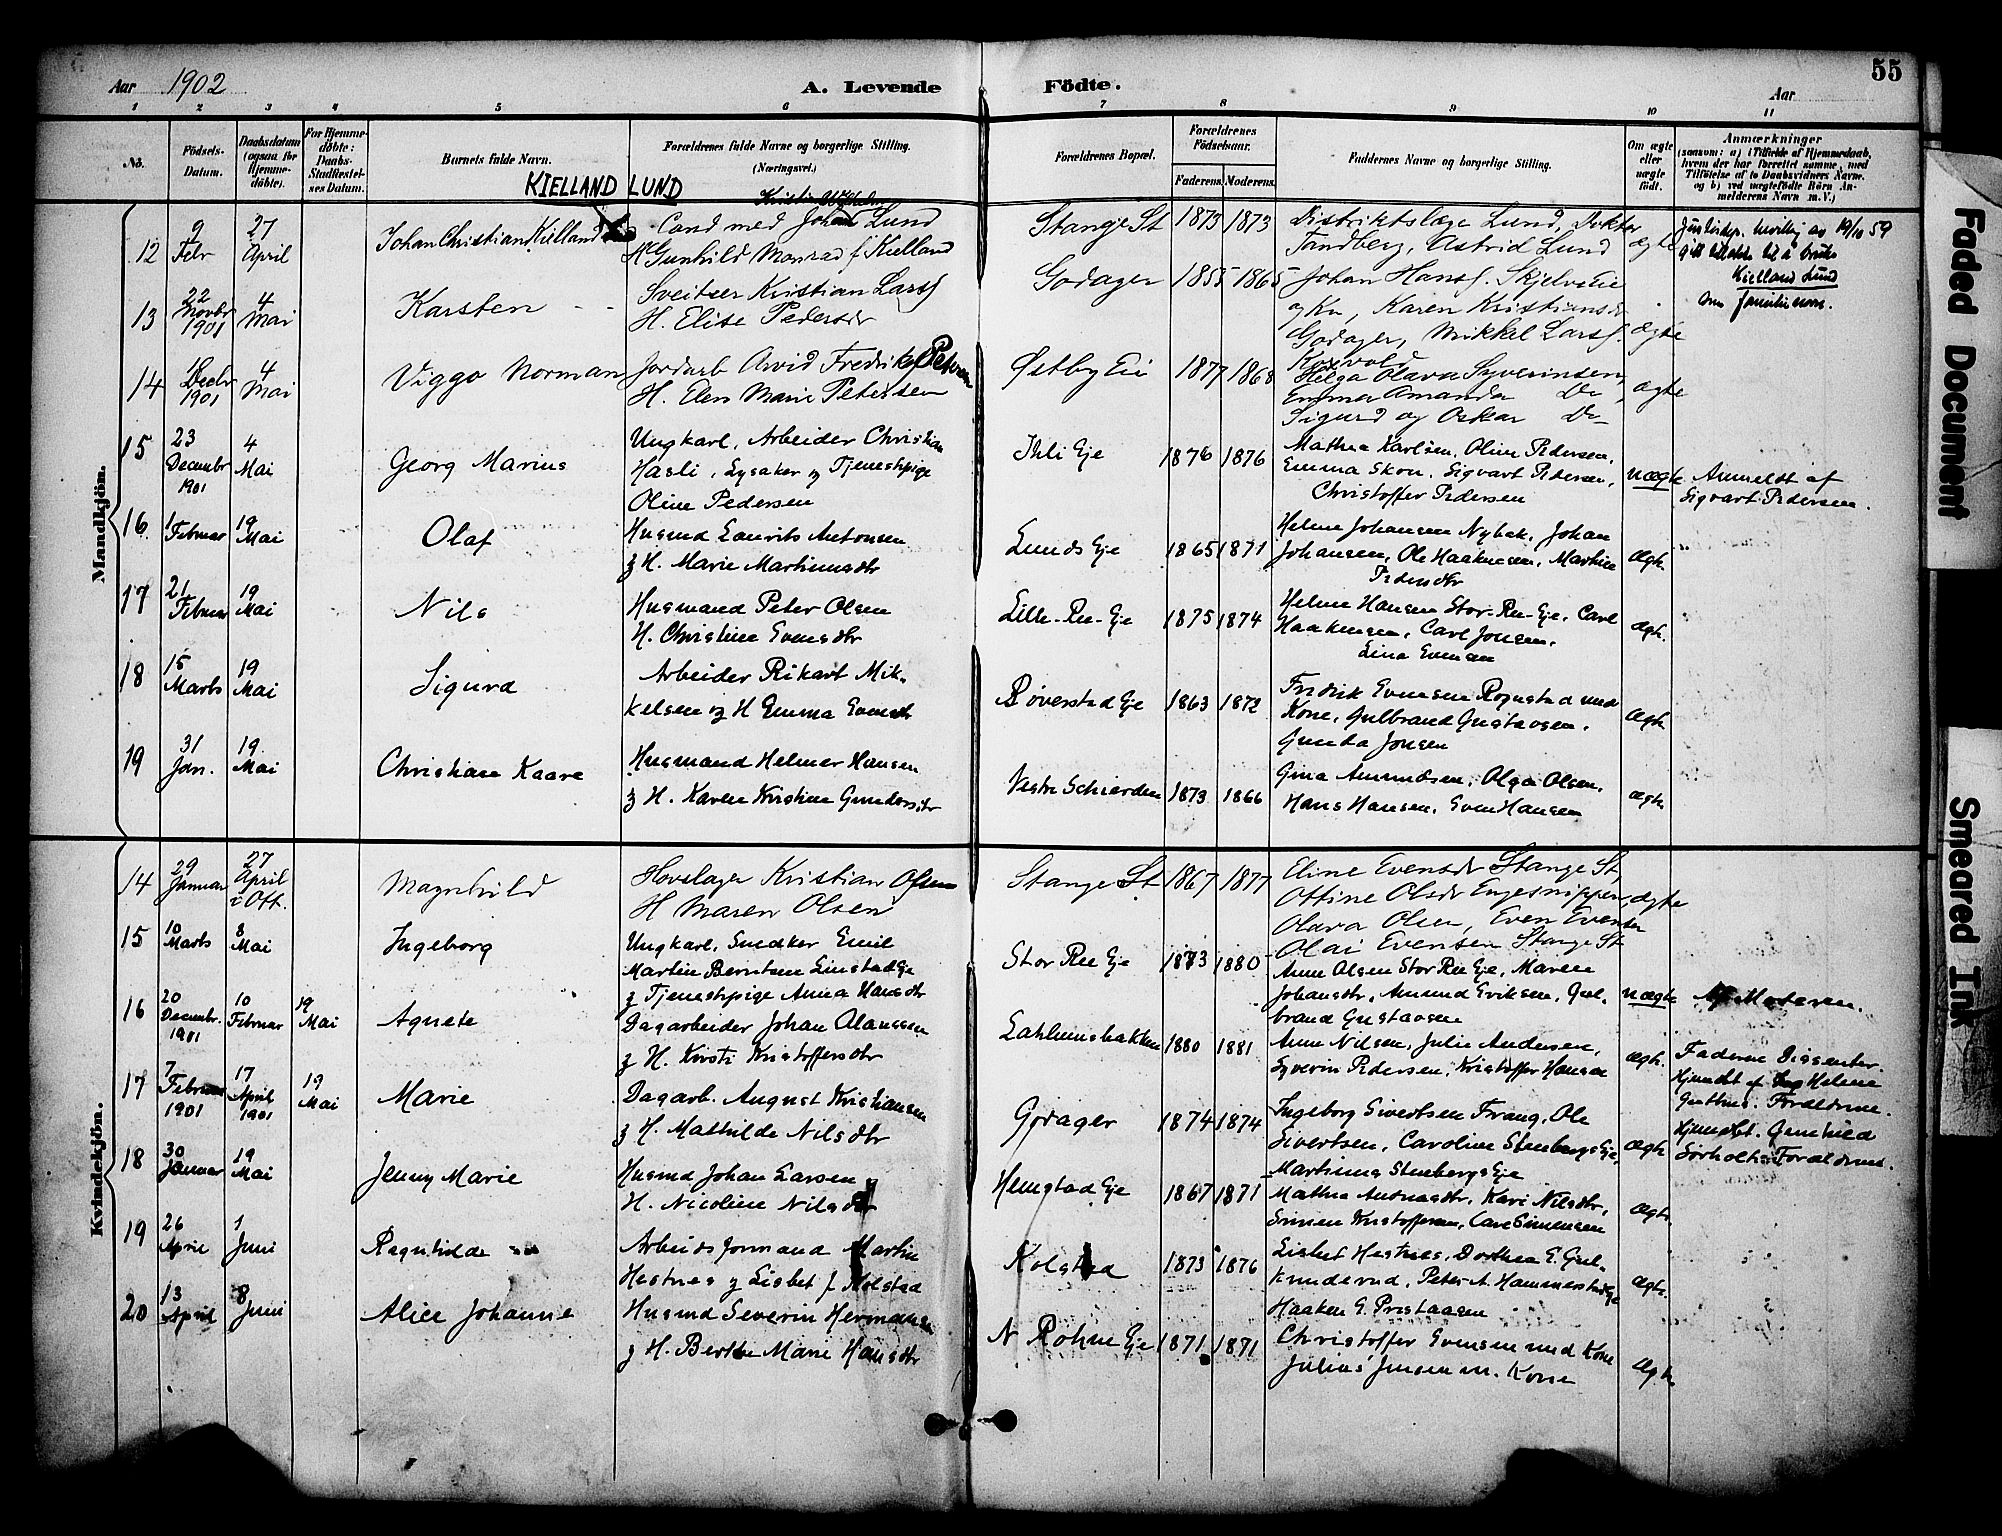 Aar 1902
A. Levende Födte.
Aar
55
1 2 3 4 5 6 7 8 9 10 11
No.
Födsels-
Datum.
Daabsdatum
(ogsaa for
Hjemme-
döbte).
For Hjemme-
döbte:
Daabs-
Stadfæstel-
ses Datum.
Barnets fulde Navn.
Forældrenes fulde Navne og borgerlige Stilling.
(Næringsvei.)
Forældrenes Bopæl.
Forældrenes
Födselsaar.
Faderens. Moderens.
Faddernes Navne og borgerlige Stilling.
Om ægte
eller
uægte
födt.
Anmærkninger
(saasom: a) i Tilfælde af Hjemmedaab,
hvem der har forrettet samme, med
Tilföielse af to Daabsvidners Navne.
og b) ved uægtefödte Börn An-
melderens Navn m.V.)
KIELLAND LUND
Mandkjön.
12
9
Febr
27
April
Johan Christian Kielland
Cand med Johan Lund
Gunhild Monrad f Kielland
Stange St
1873
1873
Distriktslæge Lund, Doktor
Tandberg, Astrid Lund
ægte
av 19/10 59
til å bruke
Kielland Lund
familienavn.
13
22
Novbr
1901
4
Mai
Karsten
Sveitser Kristian Larss
H. Elise Pedersdr
Godager
1855
1865
Johan Hanss. Skjelveie
og Kn, Karen Kristiansdr
Godager, Mikkel Larss.
ægte
14
Decbr
1901
4
Mai
Viggo Norman
Jordarb Arvid Fredriks Petersen
H. Elen Marie Petersen
Østby Eie
1877
1868
Helga Olava Syverinsen,
Emma Amanda Do
Sigurd og Oskar Do
ægte
15
23
Decembr
1901
4
Mai
Georg Marius
Ungkarl, Arbeider Christian
Hasli, Lysaker og Tjenestpige
Oline Pedersen
Ihli Eje
1876
1876
Mathea Karlsen, Oline Pedersen,
Emma Skon, Sigvart Pedersen,
Christoffer Pedersen
uægte
Anmeldt af
Sigvart Pedersen.
16
1
Februar
19
Mai
Olaf
Husmd Laurits Antonsen
og H. Marie Martinusdtr
Lunds Eje
1865
1871
Helene Johansen Nybak, Johan
Johansen, Ole Haakensen, Martine
Pedersdtr
ægte
17
21
Februar
19
Mai
Nils
Husmand Peter Olsen
H. Christine Evensdtr
Lille-Ree-Eje
1875
1874
Helene Hansen Stor-Ree-Eje, Carl
Haakensen, Carl Jonsen,
Lina Evensen
ægte
18
15
Marts
19
Mai
Sigurd
Arbeider Rikart Mik-
kelsen og H Emma Evensdtr
Røverstad Eje
1863
1872
Fredrik Evensen Rognstad med
Kone, Gulbrand Gustavsen,
Gunda Jonsen
ægte
19
31
Jan.
19
Mai
Christian Kaare
Husmand Helmer Hansen
og H. Karen Kristine Gundersdtr
Vestre Schjerden
1873
1866
Gina Amundsen, Olga Olsen,
Hans Hansen, Even Hansen
ægte
Kvindekjön.
14
29
Januar
27
April
i Ott.
Magnhild
Hovslager Kristian Olsen
H Maren Olsen
Stange St
1867
1877
Eline Evensdr Stange St
Ottine Olsdr Engesnippen,
Olava Olsen, Even Evensen
Olai Evensen Stange St
ægte
15
10
Marts
8
Mai
Ingeborg
Ungkarl, Snedker Emil
Martin Berntsen Linstad Eje
og Tjenestpige Anna Hansdtr
Stor Ree Eje
1873
1880
Anne Olsen Stor Ree Eje, Maren
Johansdtr, Amund Eriksen, Gul-
brand Gustavsen
uægte
Af Moderen.
16
20
Decembr.
1901
10
Februar
19
Mai
Agnete
Dagarbeider Johan Olaussen
og H. Kirsti Kristoffersdtr
Lahlumsbakken
1880
1881
Anne Nilsen, Julie Andersen,
Syverin Pedersen, Kristoffer Hansen
ægte
Faderen Dissenter
Hjemdbt af Helene
Forældrene.
17
7
Februar
1901
17
April
1901
19
Mai
Marie
Dagarb. August Kristiansen
og H. Mathilde Nilsdtr
Godager
1874
1874
Ingeborg Sivertsen Frang, Ole
Sivertsen, Caroline Stenbergs Eje,
Martinus Stenbergs Eje
ægte
Hjemdbt. Gunhild
Sørholt. Forældrene.
18
30
Januar
19
Mai
Jenny Marie
Husmd Johan Larsen
H. Nicoline Nilsdtr
Hemstad Eje
1867
1871
Mathea Andreasdtr, Kari Nilsdtr,
Simen Kristoffersen, Carl Simensen
ægte
19
26
April
1
Juni
Ragnhilde
Arbeidsformand Martin
Hestnes og Lisbet f Kolstad
Kolstad
1873
1876
Lisbet Hestnes, Dorthea E. Gul-
knuderud, Peter A. Hammerstad Eje
Haaken G. Pristaasen
ægte
20
13
April
8
Juni
Alice Johanne
Husmd Severin Hermansen
og H. Berthe Marie Hansdtr
N Rohne Eje
1871
1871
Christoffer Svensen med Kone
Julius Jensen m. Kone
ægte
Faded Document
Smeared Ink